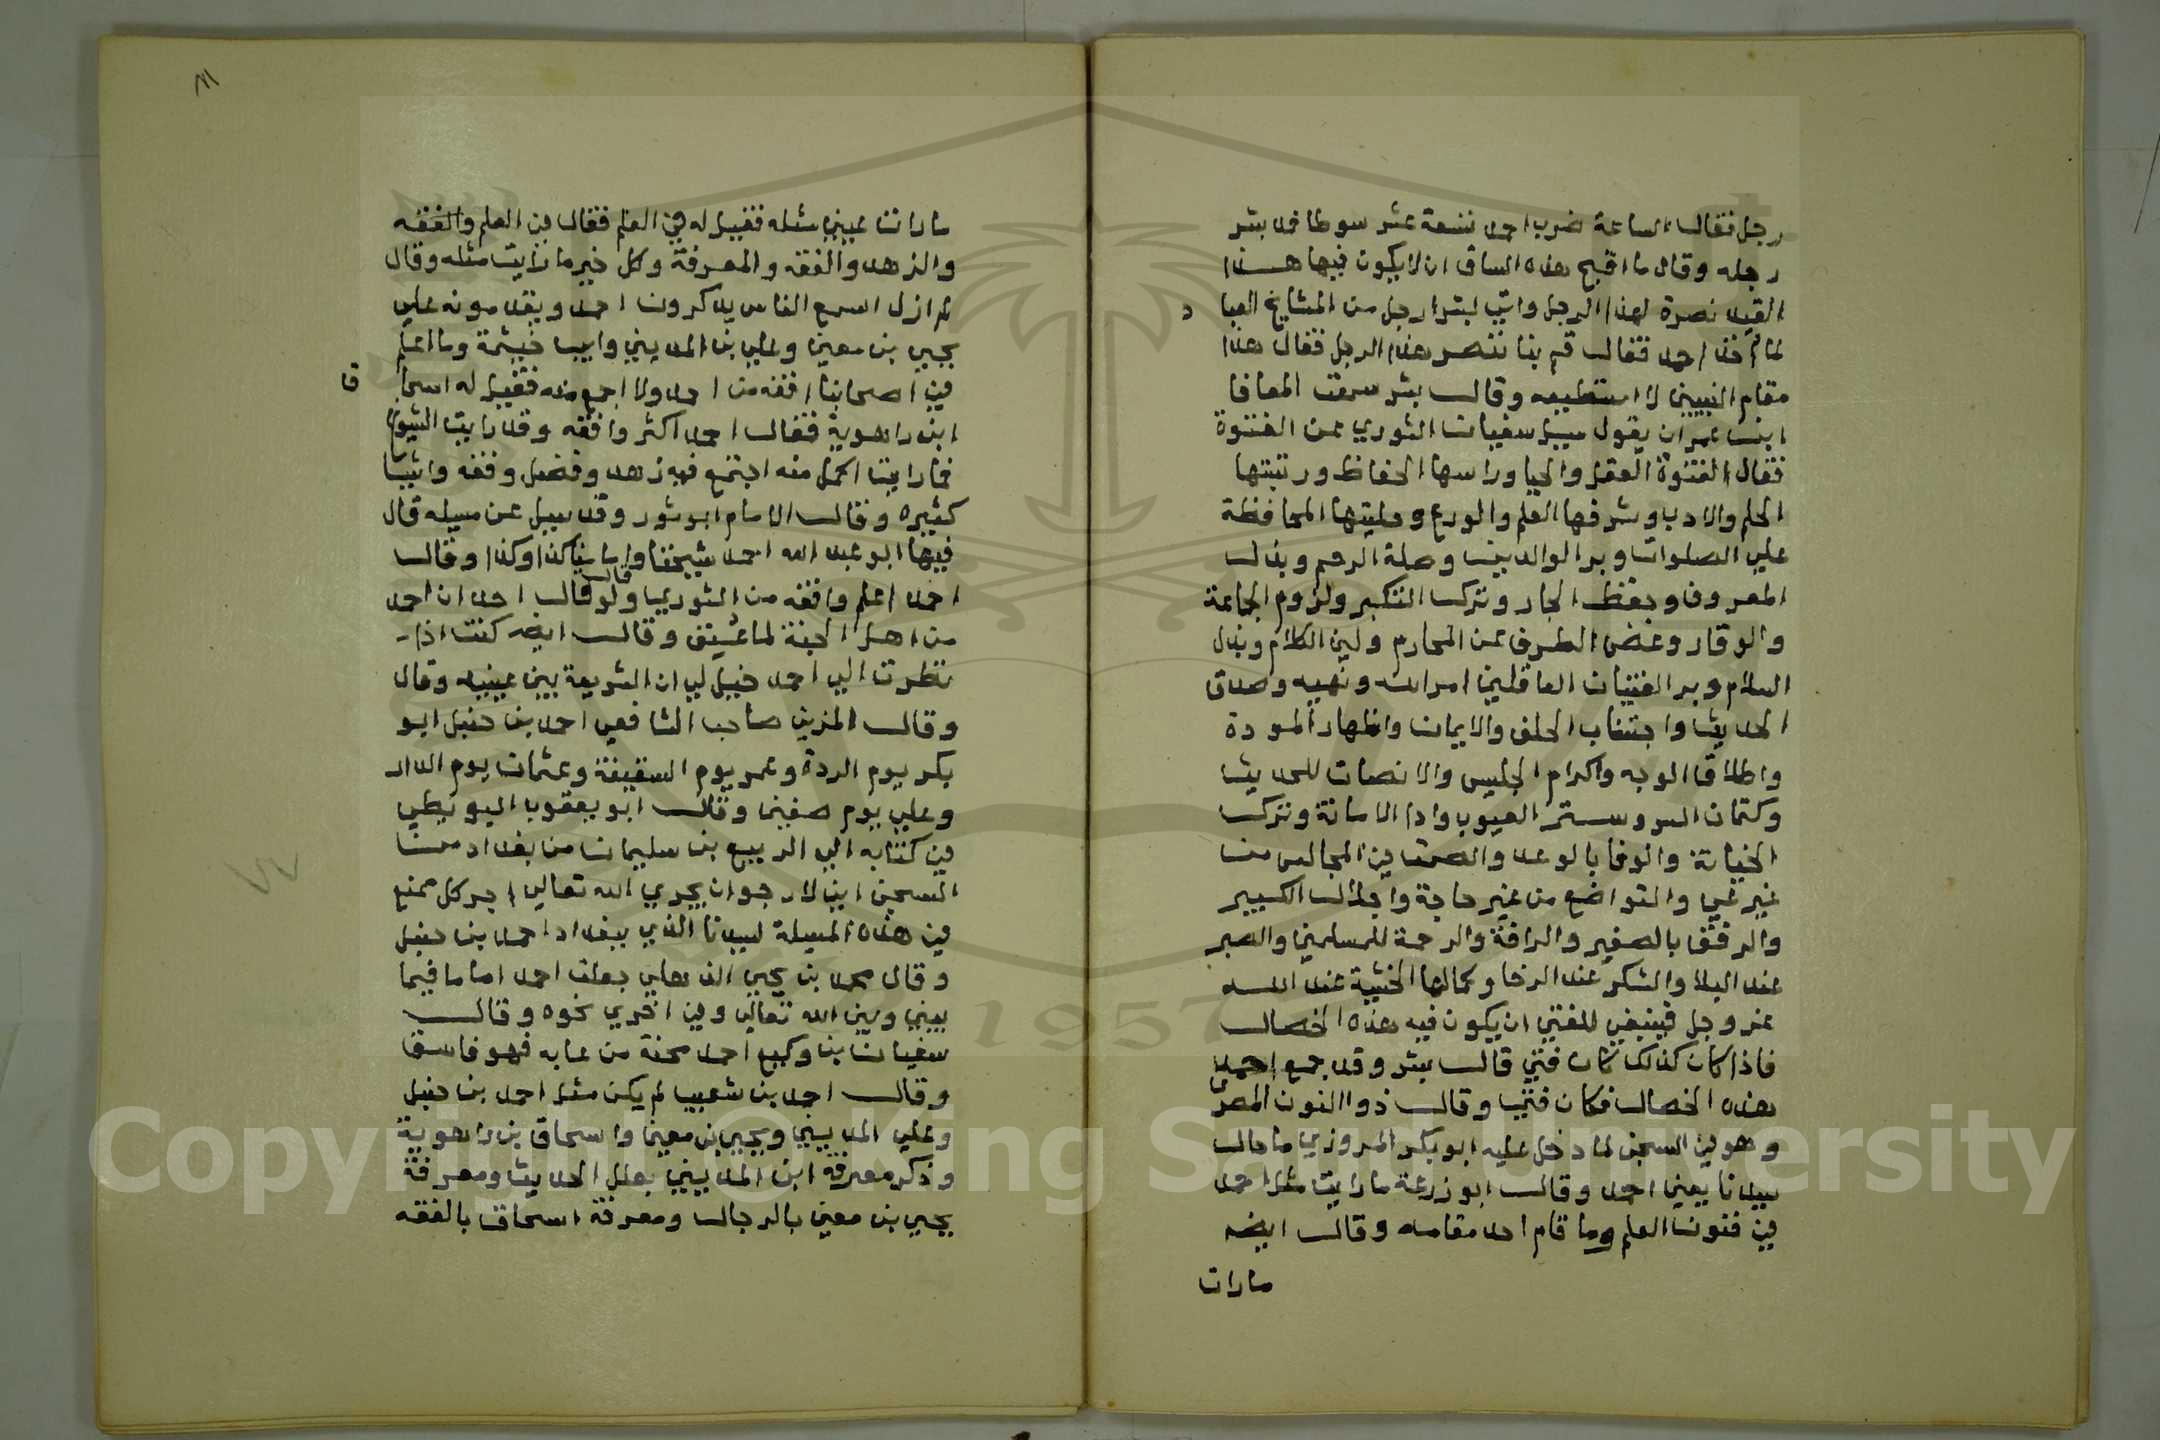 رجل فقال الساعة ضرب احمد تسعة عشر سوطا فمد بشر
رجله وقال ما اقبح هذه الساق ان لا يكون فيها هذا
القيد نصرة لهذا الرجل واتي لبشر رجل من المشايخ العبا د
لما اخذ احمد فقال قم بنا ننصر هذا الرجل فقال هذا
مقام النبيين لا استطيعه وقال بشر سمعت المعافا
ابن عمران يقول سيل سفيان الثوري عن الفتوة
فقال الفتوة العقل والحيا وراسها الحفاظ ورتبتها
الحلم والادب وشرفها العلم والورع وحليتها المحافظة
علي الصلوات وبر الوالدين وصلة الرحم وبذل
المعروف وحفظ الجار وترك التكبر ولزوم الجماعة
والوقار وغض الطرف عن المحارم ولين الكلام وبذل
السلام وبر الفتيان العاقلين امر الله ونهيه وصدق
الحديث واجتناب الحلف والايمان واظهار المودة
واطلاق الوجه واكرام الجليس والانصات للحديث
وكتمان السر وستر العيوب وادا الامانة وترك
الخيانة والوفا بالوعد والصمت في المجالس من
غير عي والتواضع من غير حاجة واجلال الكبير
والرفق بالصغير والرافة والرحمة للمسلمين والصبر
عند البلا والشكر عند الرخا وكمالها الخشية عند الله
عز وجل فينبغي للفتي ان يكون فيه هذه الخصال
فاذا كان كذلك كان فتي قال بشر وقد جمع احمد
هذه الخصال فكان فتي وقال ذو النون المصري
وهو في السجن لما دخل عليه ابو بكر المروزي ما حال
سيدنا يعني احمد وقال ابو زرعة ما رايت مثل احمد
في فنون العلم وما قام احد مقامه وقال ايضه
ما رات
٨١
ما رات عيني مثله فقيل له في العلم فقال في العلم والفقه
والزهد والفقه والمعرفة وكل خير ما رايت مثله وقال
لم ازل اسمع الناس يذكرون احمد ويقدمونه علي
يحيي بن معين وعلي بن المديني وابي خيثمة وما اعلم
في اصحابنا افقه من احمد ولا اجمع منه فقيل له اسحا ق
ابن راهوية فقال احمد اكثر وافقه وقد رايت الشيوخ
فما رايت اكمل منه اجتمع فيه زهد وفضل وفقه واشيا
كثيره وقال الامام ابو ثور وقد سيل عن مسيله قال
فيها ابو عبد الله احمد شيخنا وامامنا كذا وكذا وقال
احمد اعلم وافقه من الثوري ولو قال قال احد ان احمد
من اهل الجنة لما عنف وقال ايضه كنت اذا
نظرت الي احمد خيل لي ان الشريعة بين عينيه وقال
وقال المزني صاحب الشافعي احمد بن حنبل ابو
بكر يوم الردة وعمر يوم السقيفة وعثمان يوم الدار
وعلي يوم صفين وقال ابو يعقوب البويطي
في كتابه الي الربيع بن سليمان من بغداد من
السجن اني لارجو ان يجري الله تعالي اجر كل ممتنع
في هذه المسيلة لسيدنا الذي ببغداد احمد بن حنبل
وقال محمد بن يحيي الذهلي جعلت احمد اماما فيما
بيني وبين الله تعالي وفي اخري نحوه وقال
سفيان بن وكيع احمد محنة من عابه فهو فاسق
وقال احمد بن شعيب لم يكن مثل احمد بن حنبل
وعلي المديني ويحيي بن معين واسحاق بن راهوية
وذكر معرفة ابن المديني بعلل الحديث ومعرفة
يحيي بن معين بالرجال ومعرفة اسحاق بالفقه
1957
Copyright © King Saud University